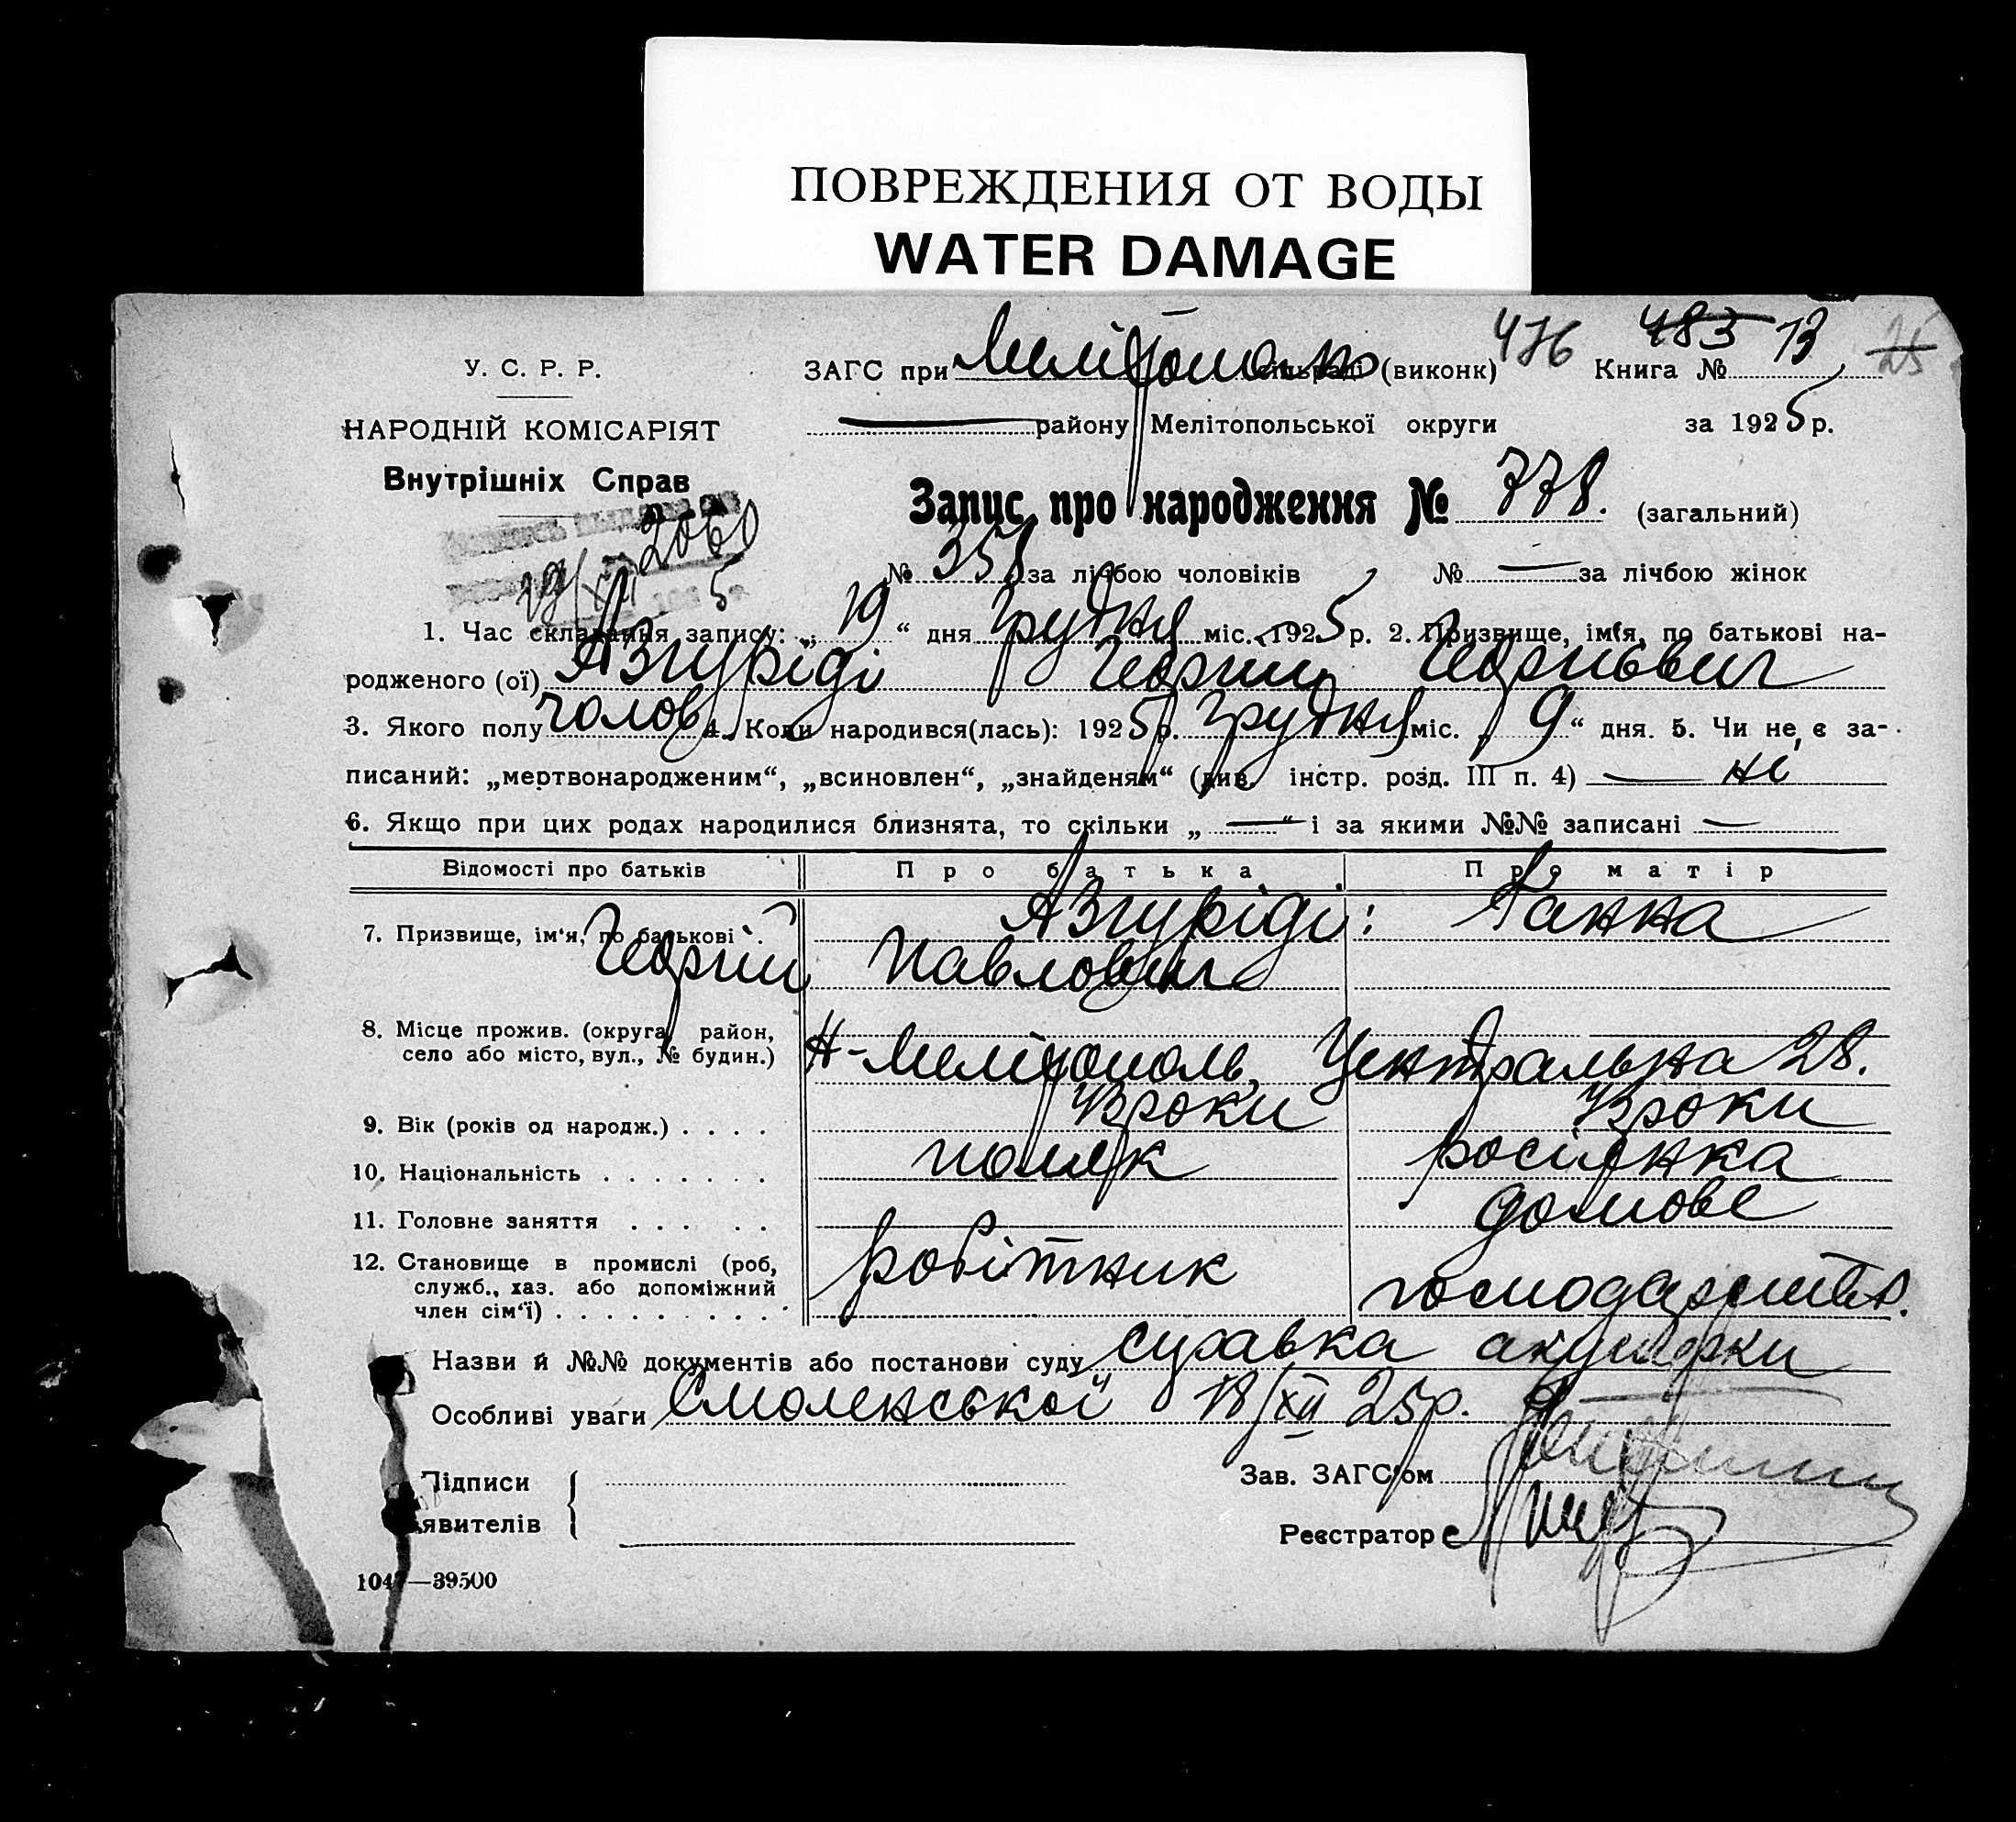 ПОВРЕЖДЕНИЯ ОТ ВОДЫ
WATER DAMAGE
476 483 13 25
У. С. Р. Р. ЗАГС при сільраді (виконк) Книга №
НАРОДНІЙ КОМІСАРІЯТ — району Мелітопольської округи за 1925 р.
Внутрішніх Справ
Запис про народження № 778. (загальний)
2060
19/XII 5
№ 358 за лічбою чоловіків № — за лічбою жінок
1. Час складання запису: „19“ дня Грудня міс. 1925 р. 2. Призвище, ім‘я, по батькові на-
родженого (ої) Азгуріді Георгій Георгієвич
3. Якого полу чолов 4. Коли народився(лась): 1925 р. Грудня міс. „9“ дня. 5. Чи не є за-
писаний: „мертвонародженим“, „всиновлен“, „знайденям“ (див. інстр. розд. III п. 4) — ні
6. Якщо при цих родах народилися близнята, то скільки „—“ і за якими №№ записані —
Відомості про батьків Про батька Про матір
7. Призвище, ім‘я, по батькові . Азгуріді: Ганна
Георгій Павлович
8. Місце прожив. (округа, район,
село або місто, вул., № будин.) Н-Мелітополь, Центральна 28.
9. Вік (років од народж.) . . . . роки роки
10. Національність . . . . . . . росіянка
11. Головне заняття . . . . . домове
12. Становище в промислі (роб, робітник
служб., хаз. або допоміжний
член сім‘ї) . . . . . . . . . господарств.
Назви й №№ документів або постанови суду справка акушерки
Особливі уваги Смоленської 18/XII 25 р.
Підписи Зав. ЗАГС‘ом
явителів Реєстратор
1047—39500